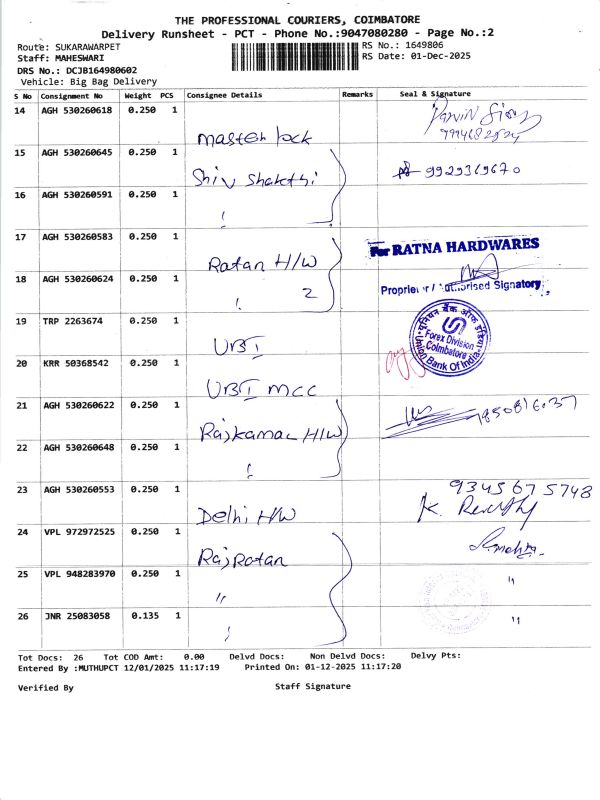 THE PROFESSIONAL COURIERS, COIMBATORE
Delivery Runsheet - PCT - Phone No.:9047080280 - Page No.:2
Route: SUKARAWARPET
RS No.: 1649806
Staff: MAHESWARI
RS Date: 01-Dec-2025
DRS No.: DCJB164980602
Vehicle: Big Bag Delivery
S No Consignment No Weight PCS Consignee Details Remarks Seal & Signature
14 AGH 530260618 0.250 1 Master lock
15 AGH 530260645 0.250 1 Shiv Shakthi 9929369670
16 AGH 530260591 0.250 1
17 AGH 530260583 0.250 1 Ratan H/W
For RATNA HARDWARES
18 AGH 530260624 0.250 1 2
Proprietor / Authorised Signatory
19 TRP 2263674 0.250 1 UBI
यूनियन बैंक ऑफ इंडिया
Forex Division
Coimbatore
Union Bank Of India
20 KRR 50368542 0.250 1 UBI MCC
21 AGH 530260622 0.250 1 Rajkamal H/W
22 AGH 530260648 0.250 1
23 AGH 530260553 0.250 1 Delhi H/W 9345675748
24 VPL 972972525 0.250 1 Raj Ratan
25 VPL 948283970 0.250 1 " "
26 JNR 25083058 0.135 1 "
Tot Docs: 26 Tot COD Amt: 0.00 Delvd Docs: Non Delvd Docs: Delvy Pts:
Entered By :MUTHUPCT 12/01/2025 11:17:19 Printed On: 01-12-2025 11:17:20
Verified By Staff Signature